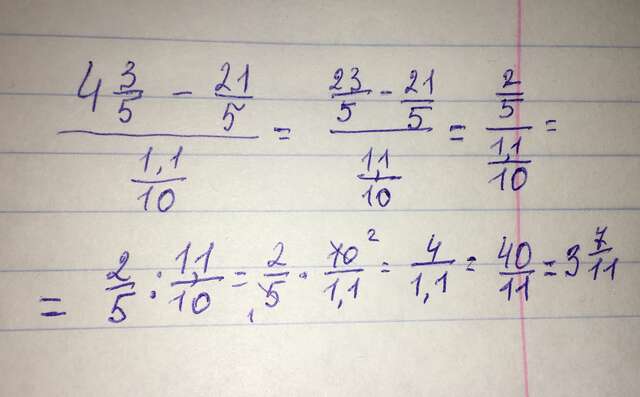 (4 3/5 - 21/5)/(1,1/10) = (23/5 - 21/5)/(1,1/10) = (2/5)/(1,1/10) =
= 2/5 : 1,1/10 = 2/5 1 · 10/1,1 2 = 4/1,1 = 40/11 = 3 7/11